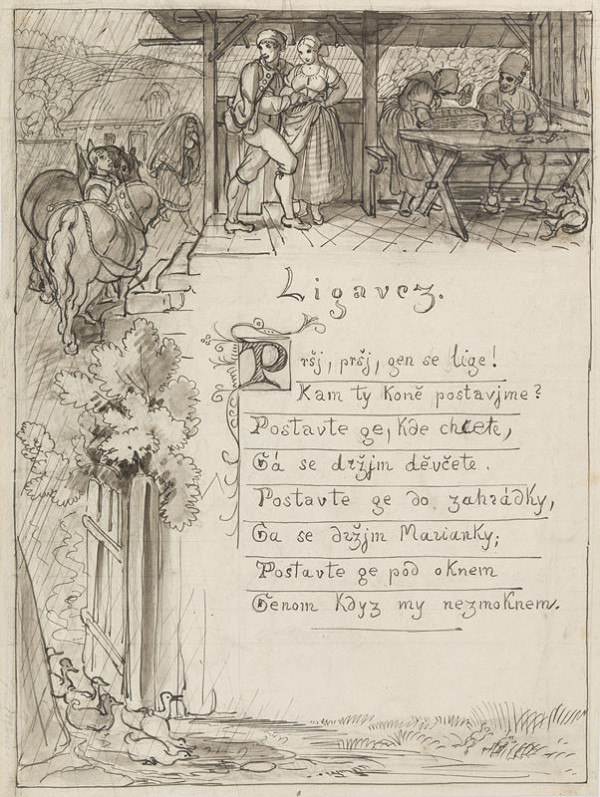 Ligavez.
Pršj, pršj, gen se lige!
Kam ty Koně postavjme?
Postavte ge, Kde chcete,
Gá se držjm děvčete.
Postavte ge do zahrádky,
Ga se držjm Marianky;
Postavte ge pod oknem
Genom Kdyz my nezmoknem.